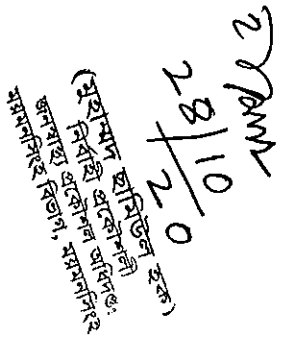 28/10/20
(মুহাম্মদ ছামিউল হক)
নির্বাহী প্রকৌশলী
জনস্বাস্থ্য প্রকৌশল অধিদপ্তর
ময়মনসিংহ বিভাগ, ময়মনসিংহ